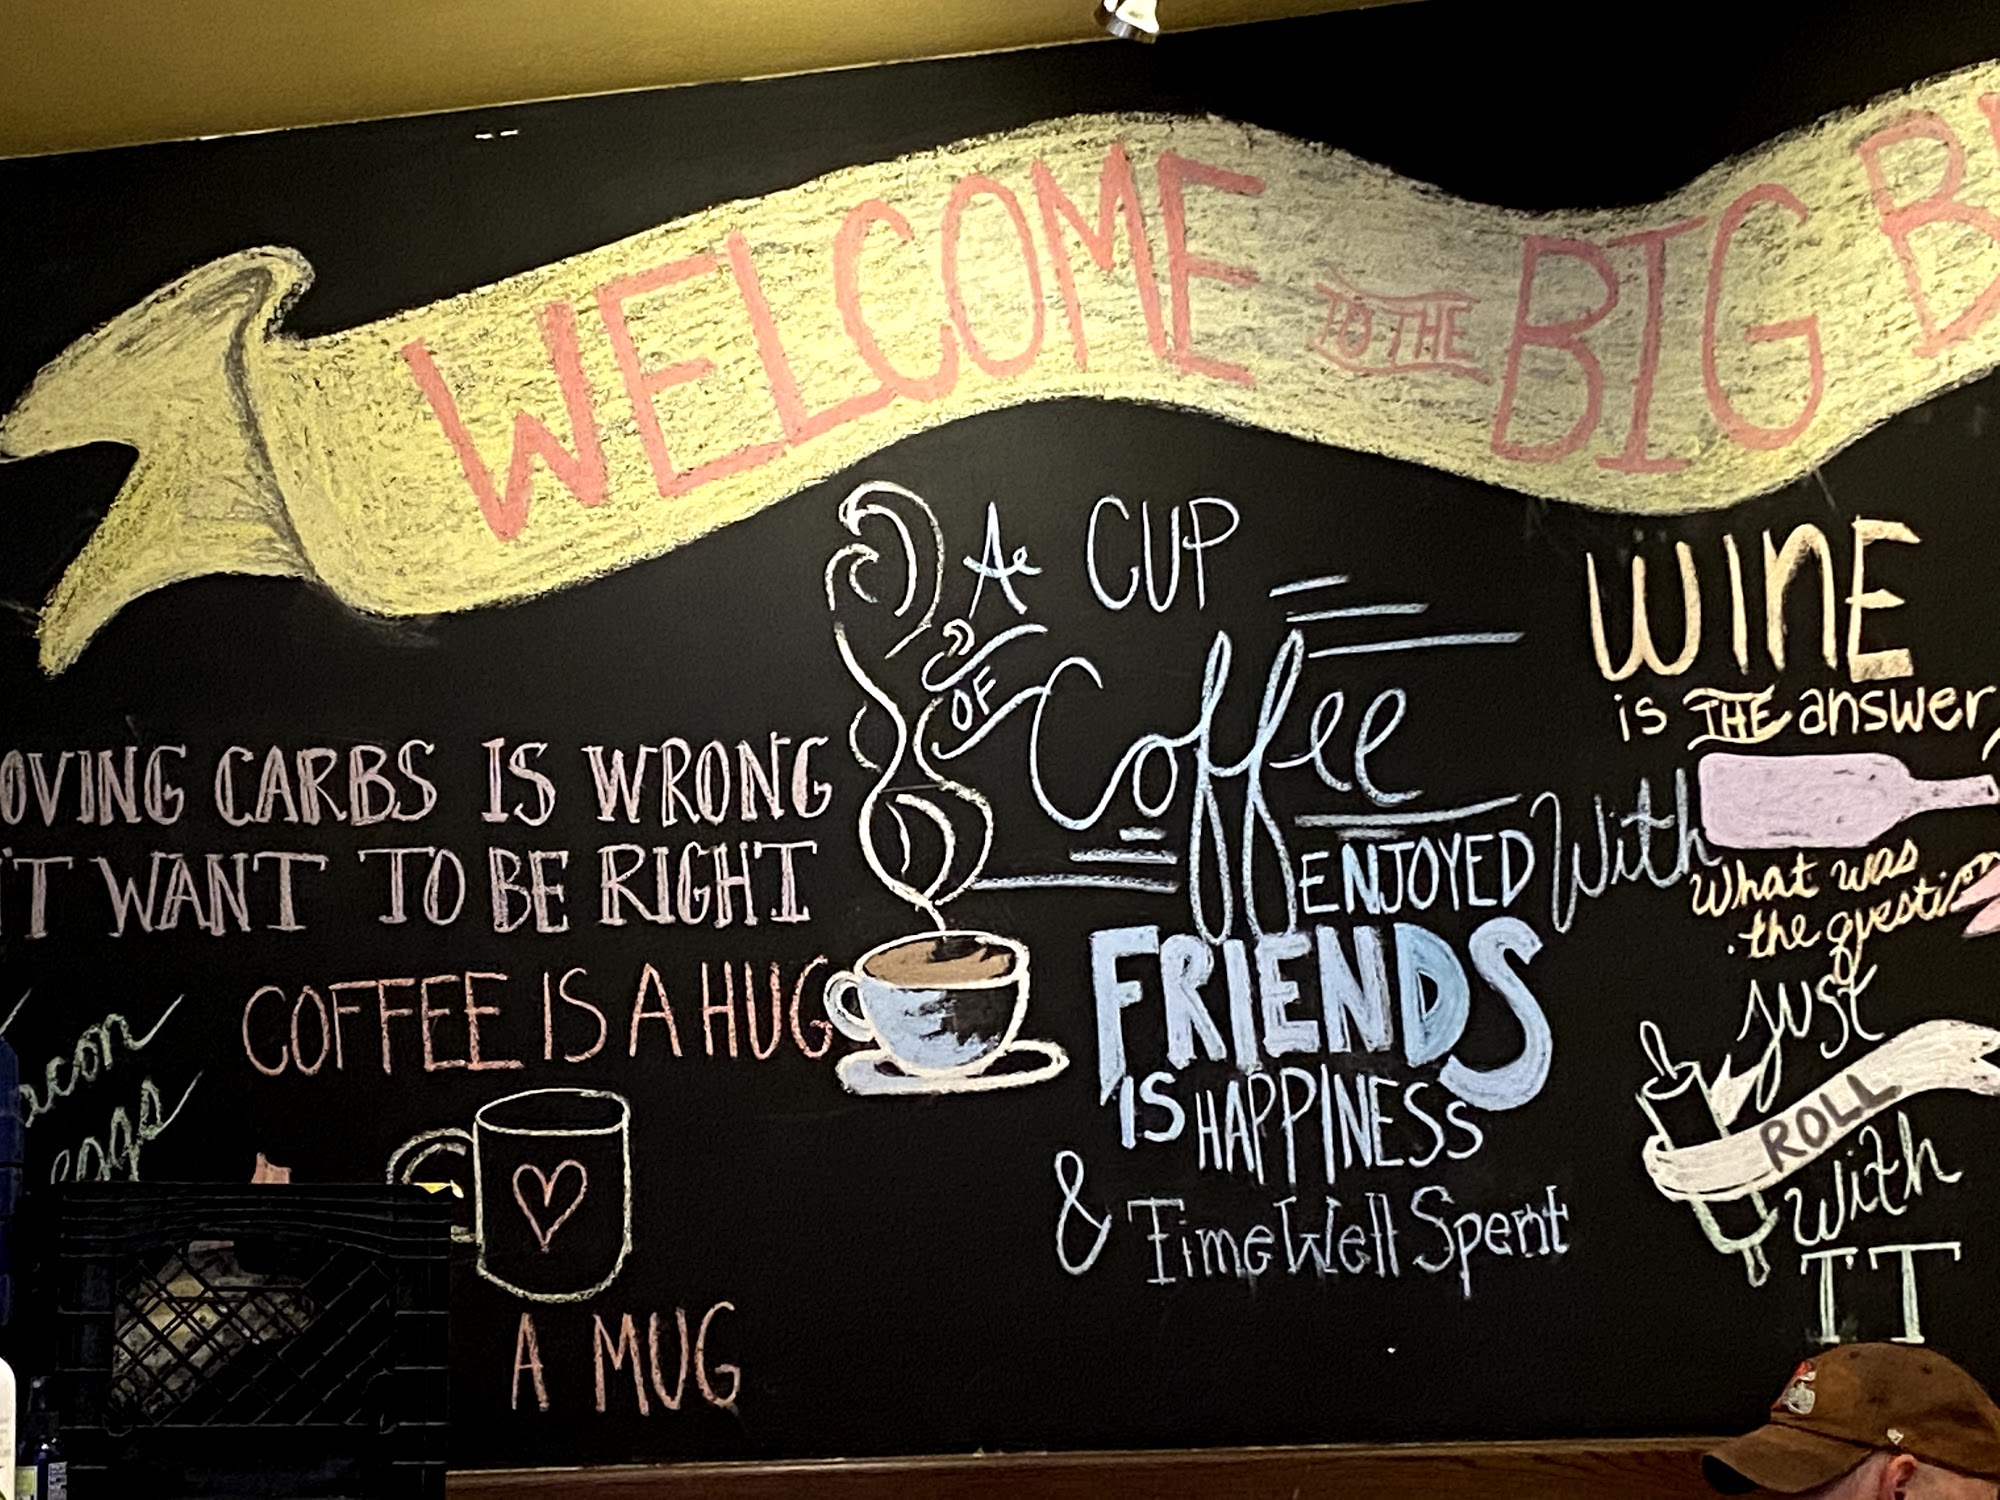 WELCOME TO THE BIG B
A CUP
OF
Coffee
ENJOYED With
FRIENDS
IS HAPPINESS
& Time Well Spent
WINE
is THE answer
What was
the question
Just
ROLL
With
IT
OVING CARBS IS WRONG
'T WANT TO BE RIGHT
COFFEE IS A HUG
A MUG
acon
eggs